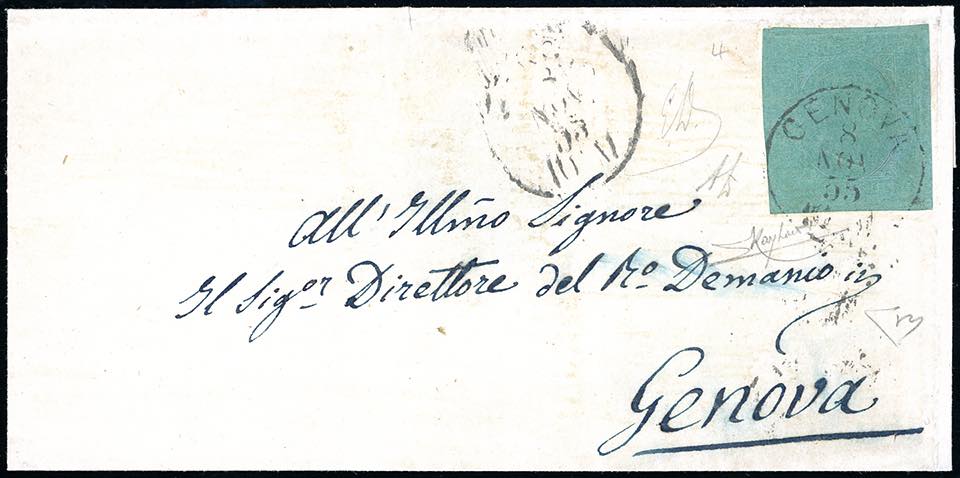 4
GENOVA
8
55
All' Illm̃o Signore
Il Sig.or Direttore del R.o Demanio in
Genova